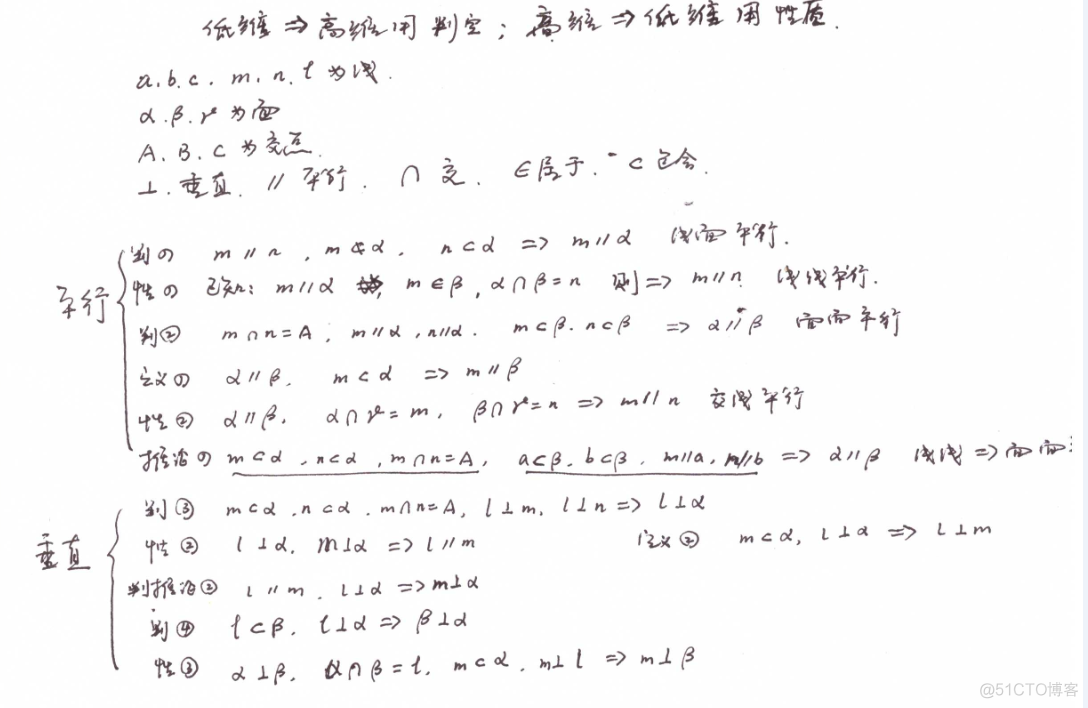 低维⇒高维用判定；高维⇒低维用性质.
a.b.c. m.n.l 为线.
α.β.γ 为面
A.B.C 为交点.
⊥.垂直. // 平行. ∩ 交. ∈属于. ⊂包含.
平行
判① m//n, m⊄α, n⊂α => m//α 线面平行.
性① 已知: m//α, m∈β, α∩β=n 则=> m//n 线线平行.
判② m∩n=A; m//α, n//α. m⊂β. n⊂β => α//β 面面平行
定义① α//β, m⊂α => m//β
性② α//β, α∩γ=m, β∩γ=n => m//n 交线平行
推论① m⊂α, n⊂α, m∩n=A, a⊂β, b⊂β, m//a, m//b => α//β 线线=>面面
垂直
判③ m⊂α, n⊂α, m∩n=A, l⊥m, l⊥n => l⊥α
性② l⊥α, m⊥α => l//m 定义② m⊂α, l⊥α => l⊥m
判推论② l//m, l⊥α => m⊥α
判④ l⊂β, l⊥α => β⊥α
性③ α⊥β, α∩β=l, m⊂α, m⊥l => m⊥β
@51CTO博客